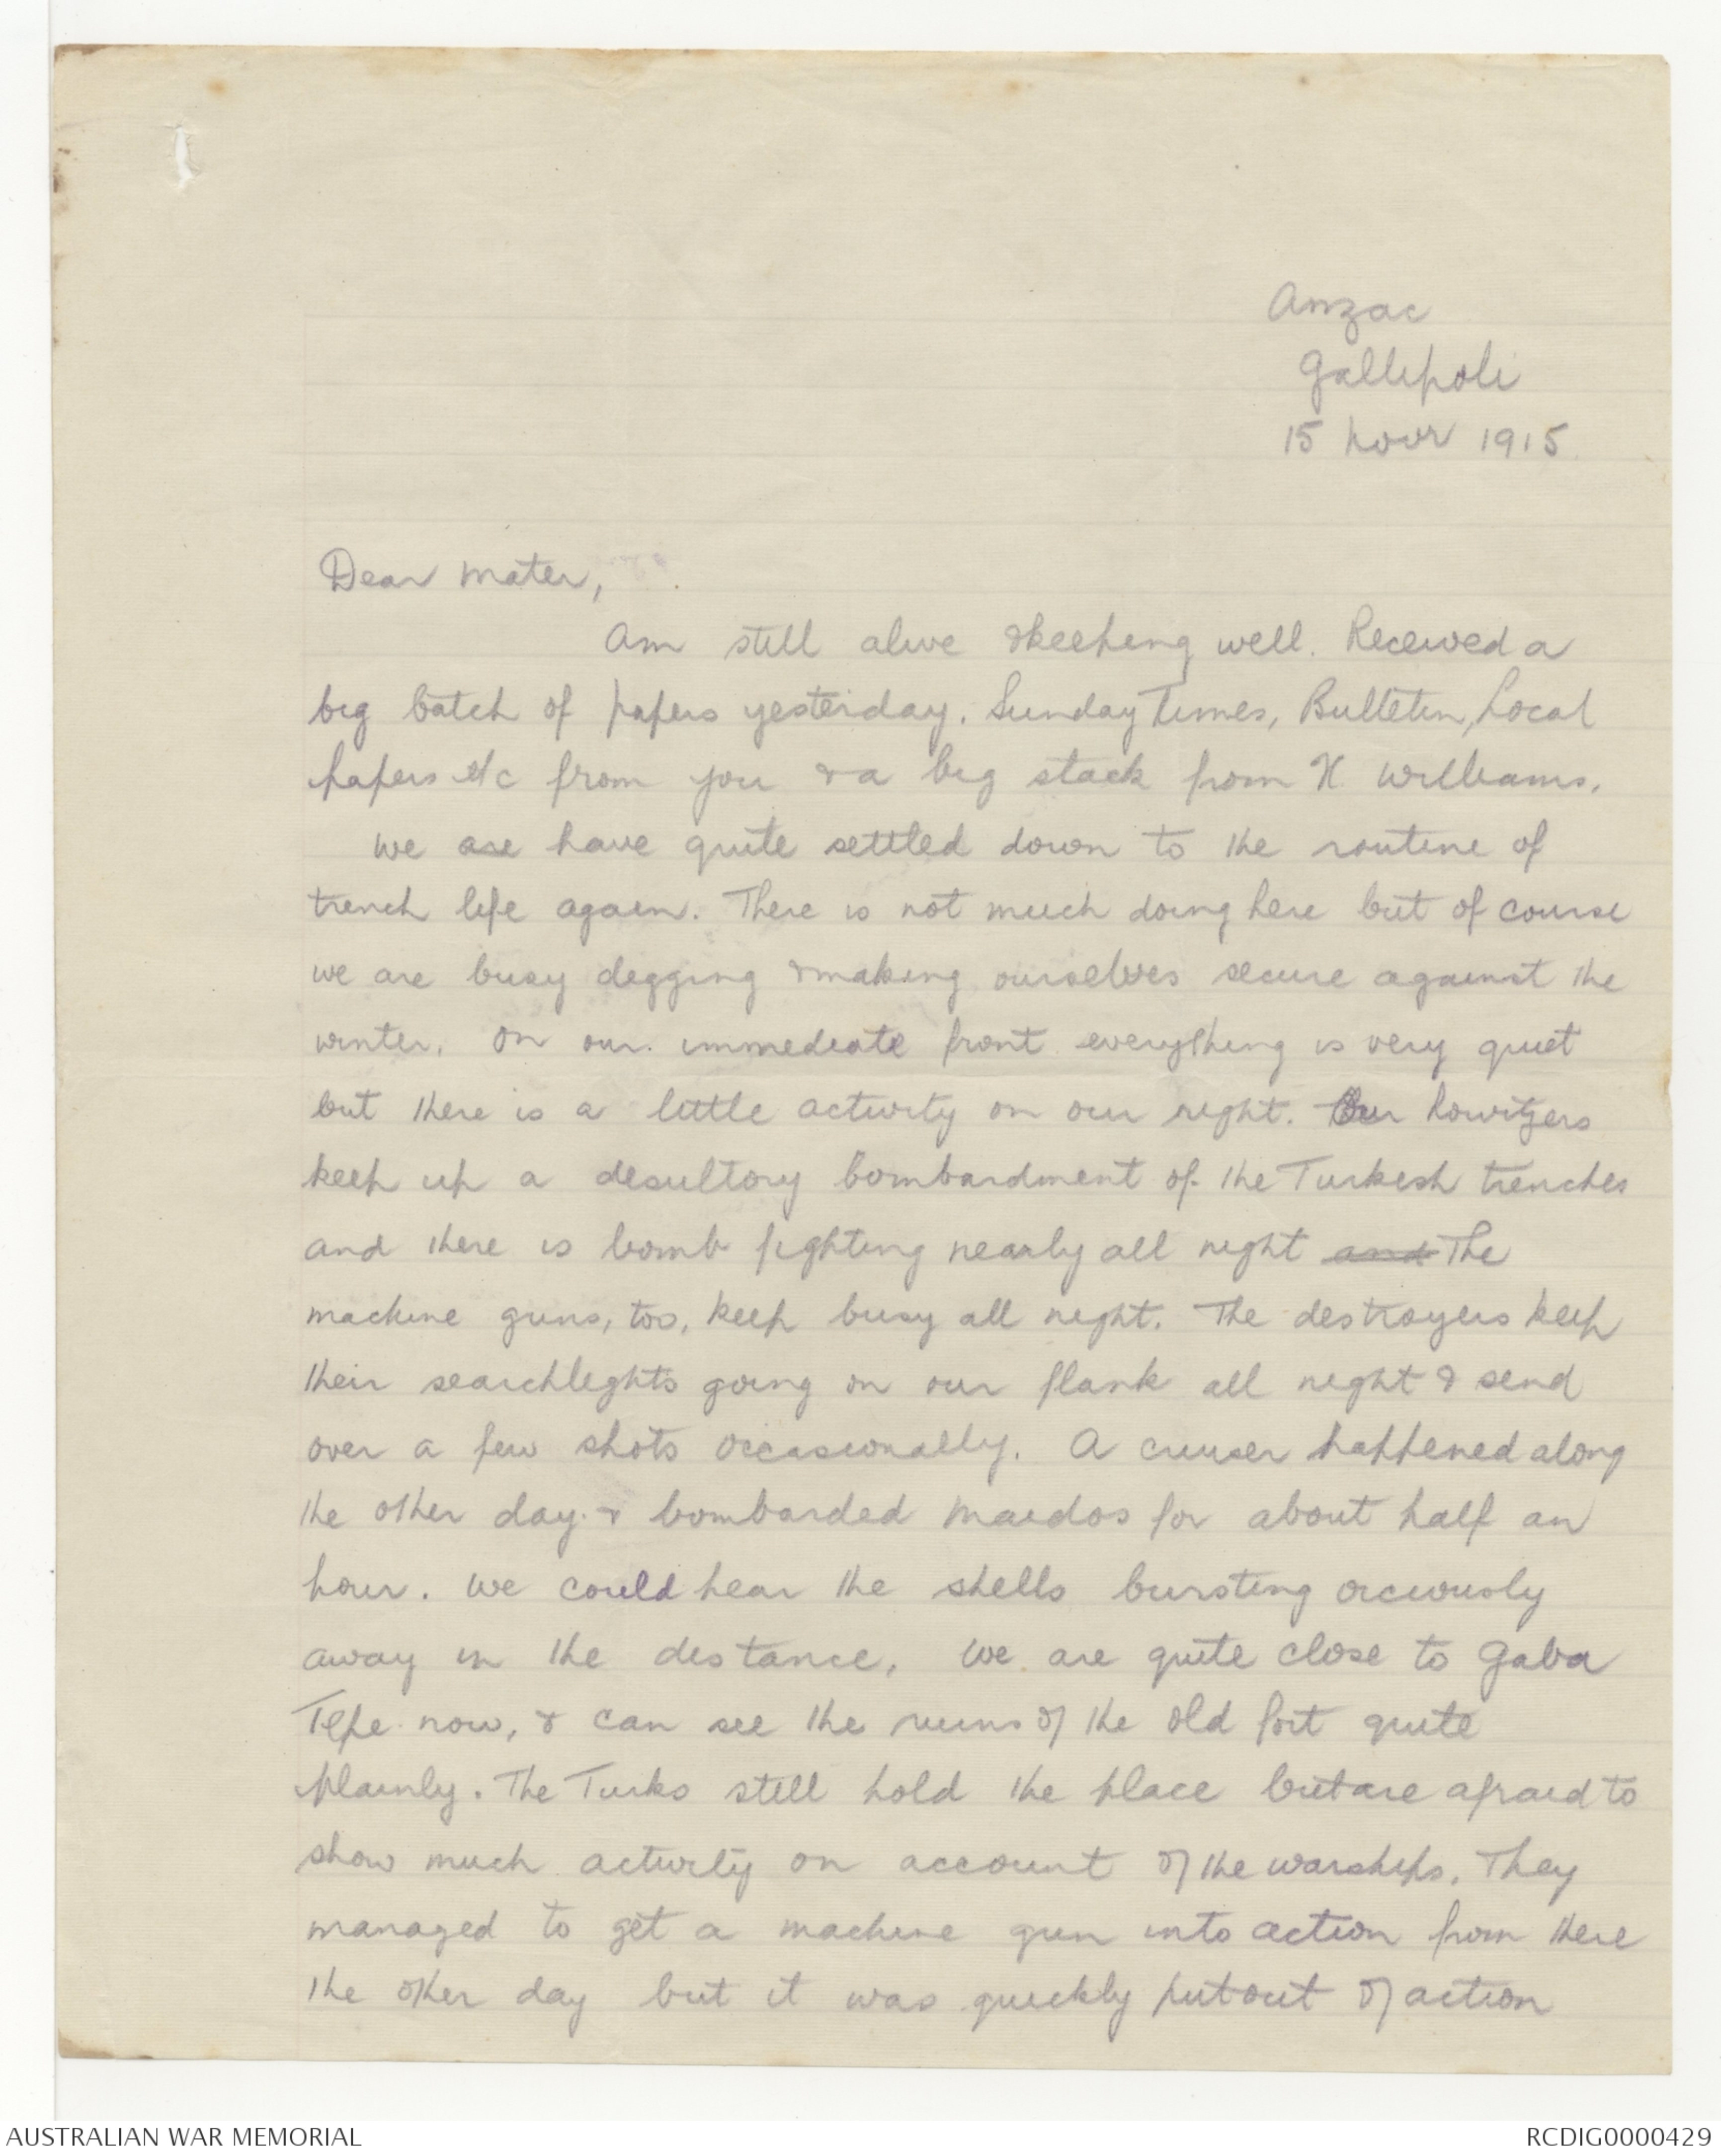 Anzac
Gallipoli
15 Novr 1915
Dear Mater,
Am still alive & keeping well. Received a
big batch of papers yesterday. Sunday Times, Bulletin, Local
papers etc from you & a big stack from H Williams.
We are have quite settled down to the routine of
trench life again. There is not much doing here but of course
we are busy digging & making ourselves secure against the
winter. On our immediate front everything is very quiet
but there is a little activity on our right. Our howitzers
keep up a desultory bombardment of the Turkish trenches
and there is bomb fighting nearly all night and The
machine guns, too, keep busy all night. The destroyers keep
their searchlights going on our flank all night & send
over a few shots occasionally. A cruiser happened along
the other day & bombarded Maidos for about half an
hour. We could hear the shells bursting
away in the distance. We are quite close to Gaba
Tepe now, & can see the ruins of the old fort quite
plainly. The Turks still hold the place but are afraid to
show much activity on account of the warships. They
managed to get a machine gun into action from there
the other day but it was quickly put out of action
AUSTRALIAN WAR MEMORIAL
RCDIG0000429